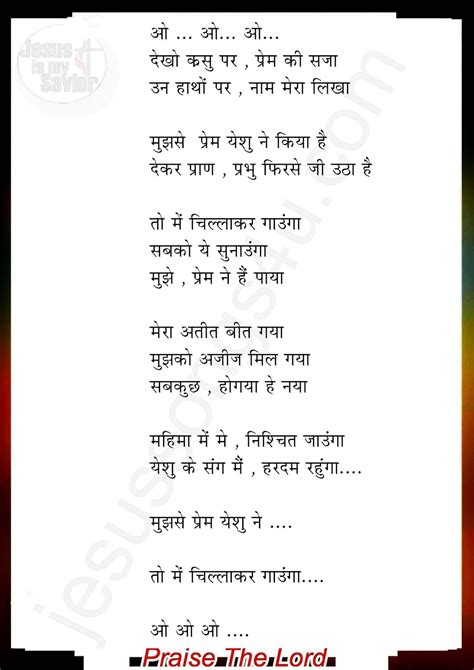 Jesus
is my
Savior
ओ ... ओ... ओ...
देखो क्रसु पर , प्रेम की सजा
उन हाथों पर , नाम मेरा लिखा
मुझसे प्रेम येशु ने किया है
देकर प्राण , प्रभु फिरसे जी उठा है
तो में चिल्लाकर गाउंगा
सबको ये सुनाउंगा
मुझे , प्रेम ने हैं पाया
मेरा अतीत बीत गया
मुझको अजीज मिल गया
सबकुछ , होगया हे नया
महिमा में मे , निश्चित जाउंगा
येशु के संग मैं , हरदम रहुंगा....
मुझसे प्रेम येशु ने ....
तो में चिल्लाकर गाउंगा....
ओ ओ ओ ....
Praise The Lord
jesussongs4u.com